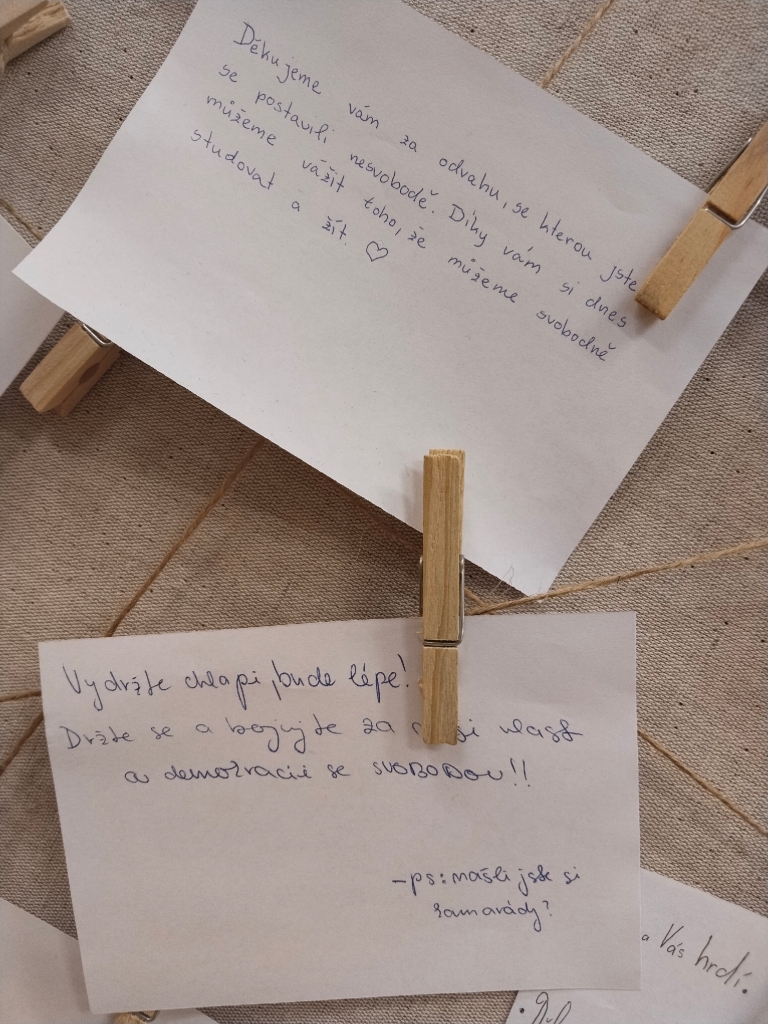 Děkujeme vám za odvahu, se kterou jste
se postavili nesvobodě. Díky vám si dnes
můžeme vážit toho, že můžeme svobodně
studovat a žít. ♡
Vydržte chlapi, bude lépe!
Držte se a bojujte za vlast
a demokracii se SVOBODOU!!
-ps: našli jste si
kamarády?
a Vás hrdí.